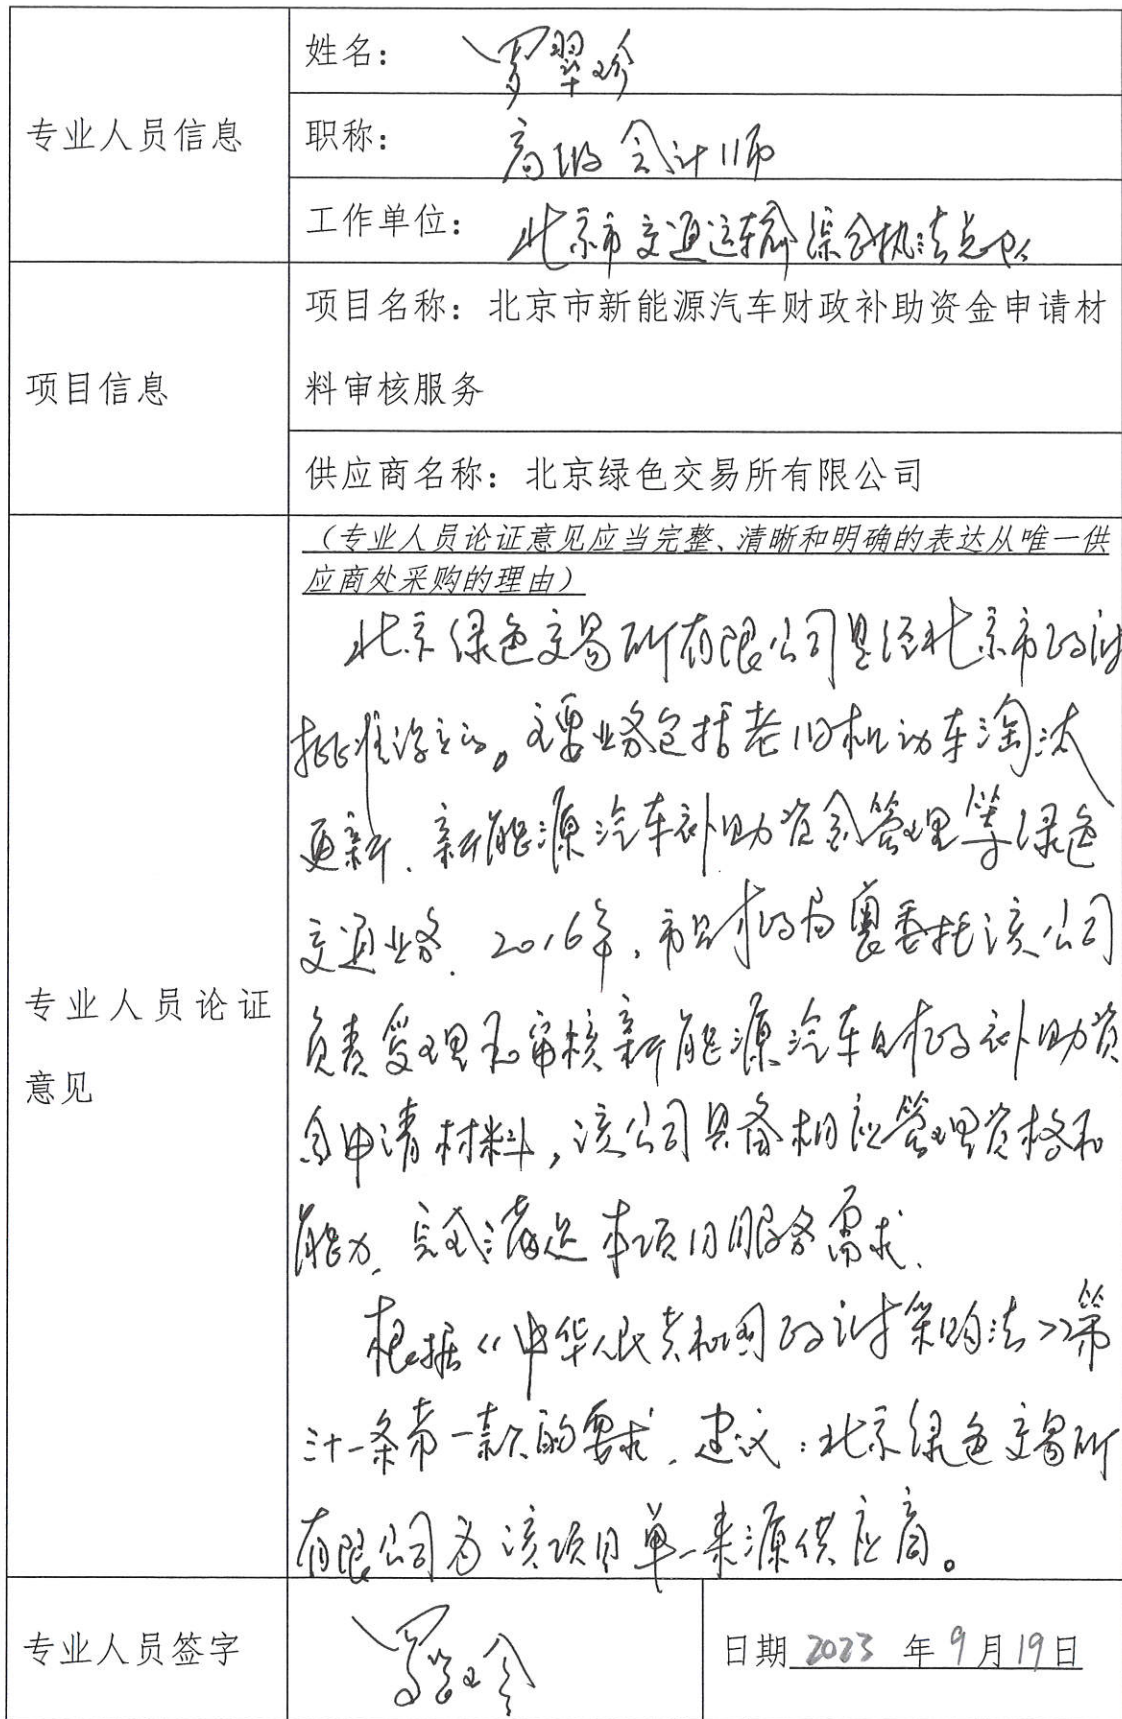 专业人员信息
姓名: 罗翠珍
职称: 高级会计师
工作单位: 北京市交通运输综合执法总队
项目信息
项目名称: 北京市新能源汽车财政补助资金申请材
料审核服务
供应商名称: 北京绿色交易所有限公司
专业人员论证
意见
(专业人员论证意见应当完整、清晰和明确的表达从唯一供
应商处采购的理由)
北京绿色交易所有限公司是经北京市政府
批准设立的。主要业务包括老旧机动车淘汰
更新、新能源汽车补助资金管理等绿色
交通业务. 2016年, 市财政局委托该公司
负责受理和审核新能源汽车财政补助资
金申请材料, 该公司具备相应管理资格和
能力, 完全满足本项目服务需求.
根据《中华人民共和国政府采购法》第
三十一条第一款的要求, 建议: 北京绿色交易所
有限公司为该项目单一来源供应商。
专业人员签字
日期 2023 年 9月 19日